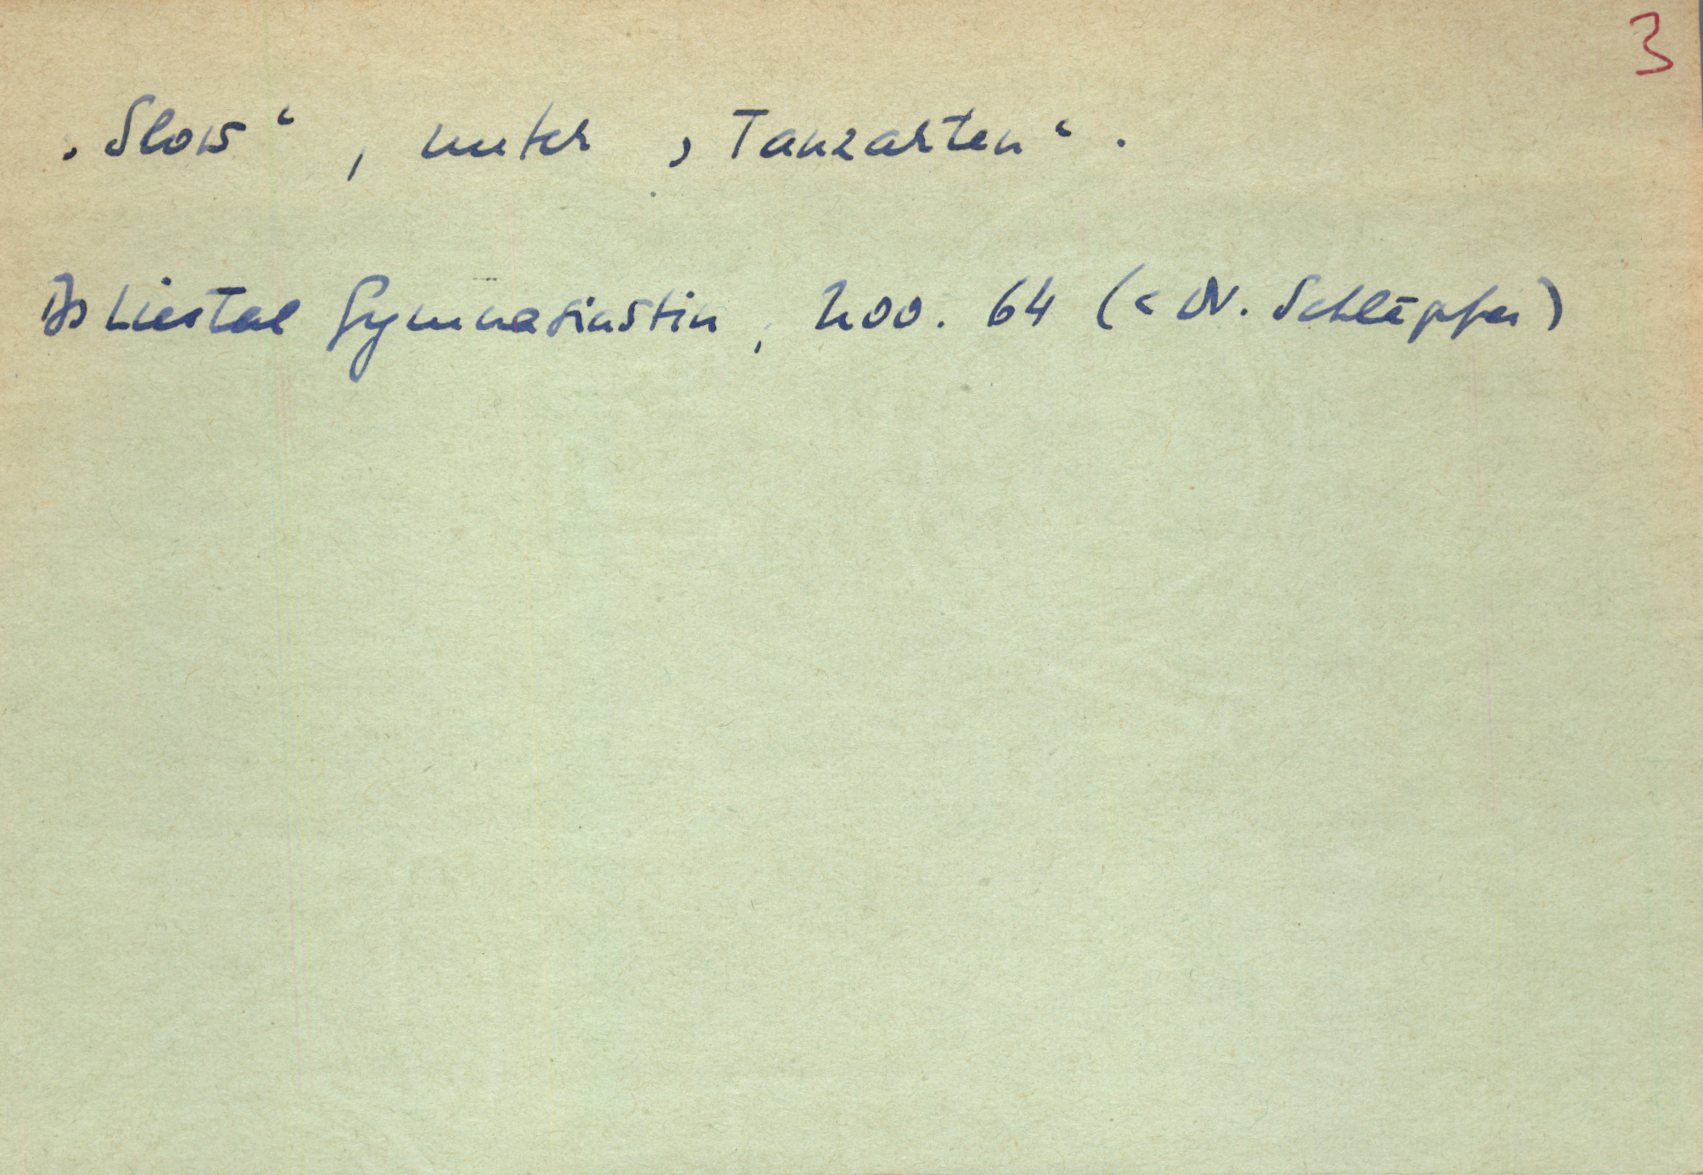 3
„Slow“, unter „Tanzarten“.
Bs Liestal Gymnasiastin, Nov. 64 (< Dr. Schläpfer)